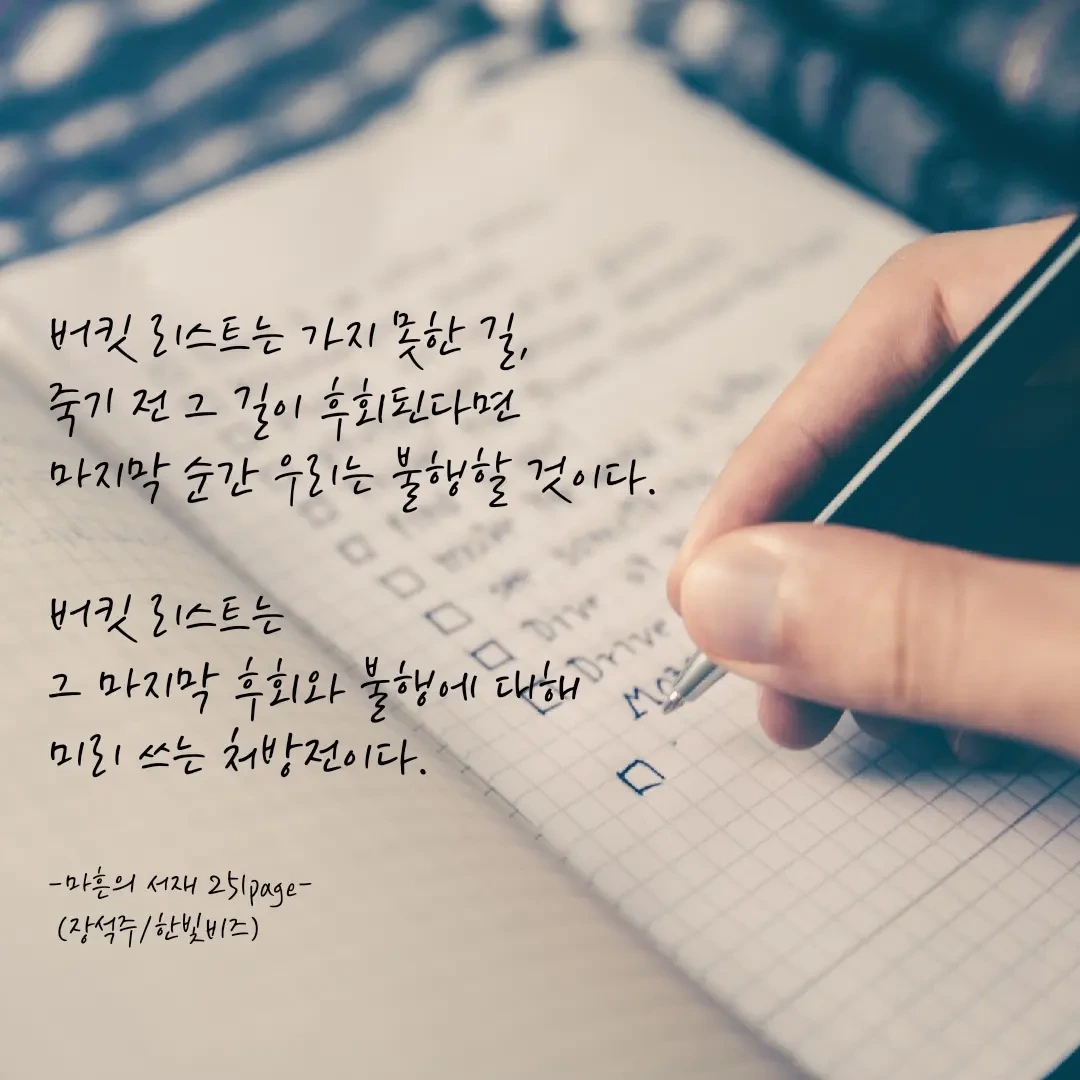 버킷 리스트는 가지 못한 길,
죽기 전 그 길이 후회된다면
마지막 순간 우리는 불행할 것이다.
버킷 리스트는
그 마지막 후회와 불행에 대해
미리 쓰는 처방전이다.
-마흔의 서재 251page-
(장석주/한빛비즈)
Drive
Drive